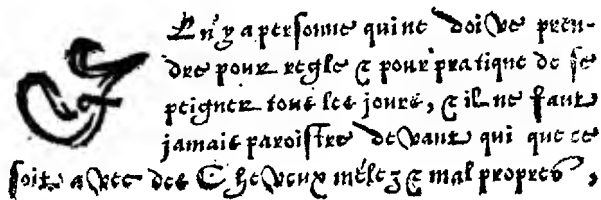 Il n'y a personne qui ne doive pren-
dre pour regle & pour pratique de se
peigner tous les jours, & il ne faut
jamais paroistre devant qui que ce
soit avec des Cheveux mélez & mal propres,